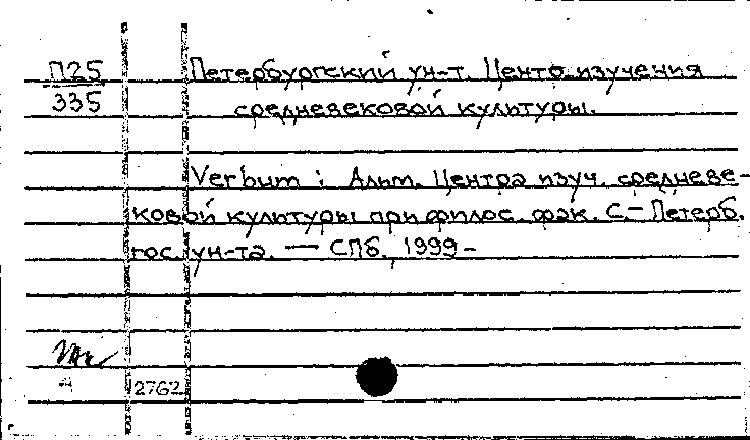 П25 Петербургский ун-т. Центр изучения
335 средневековой культуры.
Verbum : Альм. Центра изуч. средневе-
ковой культуры при филос. фак. С.-Петерб.
гос. ун-та. — СПб., 1999 -
2762